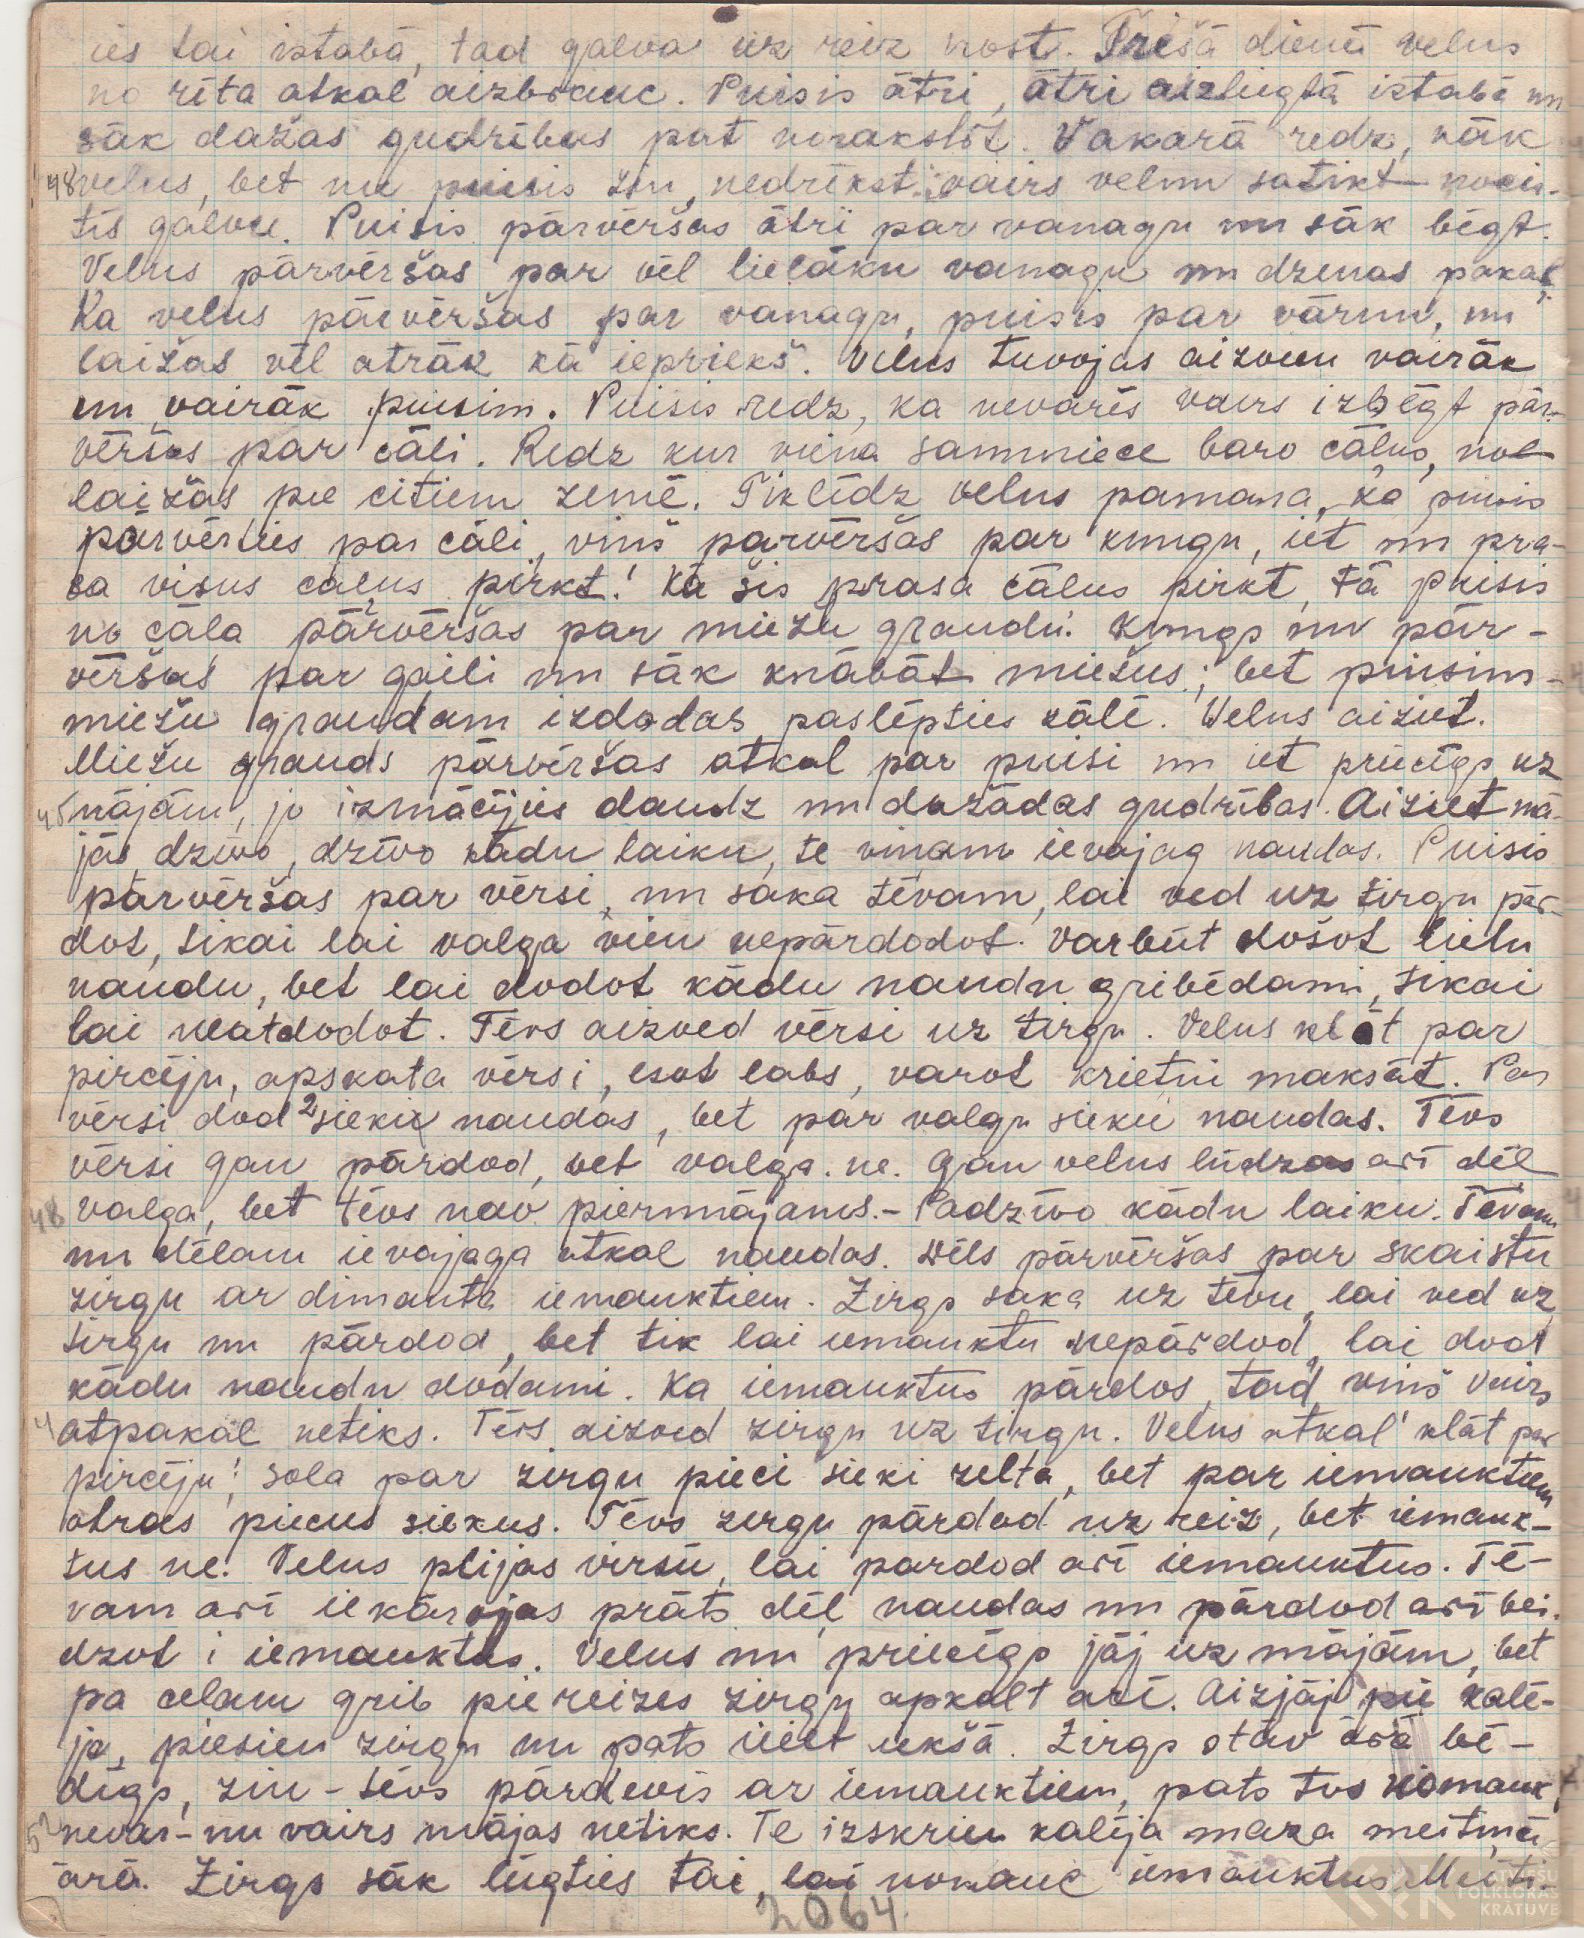 ies tai istabā, tad galva uz reiz nost. Trešā dienā velns
no rīta atkal aizbrauc. Puisis ātri, ātri aizliegtā istabā un
sāk dažas gudrības pat norakstīt. Vakarā redz, nāk
48 velns, bet nu puisis zin, nedrīkst vairs velnu satikt – nocir-
tīs galvu. Puisis pārvēršas ātri par vanagu un sāk bēgt.
Velns pārvēršas par vēl lielāku vanagu un dzenas pakaļ.
Ka velns pārvēršas par vanagu, puisis par vārnu, un
laižas vēl ātrāk kā iepriekš. Velns tuvojas aizvien vairāk
un vairāk puisim. Puisis redz, ka nevarēs vairs izbēgt pār-
vēršas par cāli. Redz kur viena saimniece baro cāļus, no-
laižas pie citiem zemē. Tiklīdz velns pamana, ka puisis
pārvērties par cāli, viņš pārvēršas par kungu, iet un pra-
sa visus cāļus pirkt! Kā šis prasa cāļus pirkt, tā puisis
no cāļa pārvēršas par miežu graudu. Kungs nu pār-
vēršas par gaili un sāk knābāt miežus; bet puisim-
miežu graudam izdodas paslēpties zālē. Velns aiziet.
Miežu grauds pārvēršas atkal par puisi un iet priecīgs uz
45 mājām, jo izmācījies daudz un dažādas gudrības. Aiziet mā-
jās dzīvo, dzīvo kādu laiku, te viņam ievajag naudas. Puisis
pārvēršas par vērsi, un saka tēvam, lai ved uz tirgu pār-
dot, tikai lai valga vien nepārdodot. Varbūt došot lielu
naudu, bet lai dodot kādu naudu gribēdami, tikai
lai neatdodot. Tēvs aizved vērsi uz tirgu. Velns klāt par
pircēju, apskata vērsi, esot labs, varot krietni maksāt. Par
vērsi dod 2 sieki naudas, bet par valgu sieku naudas. Tēvs
vērsi gan pārdod, bet valga ne. Gan velns lūdzas arī dēl
48 valga, bet tēvs nav pierunājams. – Padzīvo kādu laiku. Tēvam
un dēlam ievajaga atkal naudas. Dēls pārvēršas par skaistu
zirgu ar dimanta iemauktiem. Zirgs saka uz tēvu, lai ved uz
tirgu un pārdod, bet tik lai iemauktu nepārdod, lai dod
kādu naudu dodami. Ka iemauktus pārdos, tad viņš vairs
4 atpakaļ netiks. Tēvs aizved zirgu uz tirgu. Velns atkal klāt par
pircēju; sola par zirgu pieci sieki zelta, bet par iemauktiem
otras piecus siekus. Tēvs zirgu pārdod uz reiz, bet iemauk-
tus ne. Velns plijas virsū, lai pārdod arī iemauktus. Tē-
vam arī iekārojas prāts dēļ naudas un pārdod arī bei-
dzot i iemauktus. Velns nu priecīgs jāj uz mājām, bet
pa ceļam grib pie reizes zirgu apkalt arī. Aizjāj pie kalē-
ja, piesien zirgu un pats ieiet iekšā. Zirgs stāv ārā bē-
dīgs, zin – tēvs pārdevis ar iemauktiem, pats tos nomaukt
52 nevar – nu vairs mājas netiks. Te izskrien kalēja maza meitiņa
ārā. Zirgs sāk lūgties tai, lai nomauc iemauktus. Meit-
2064.
LATVIEŠU
FOLKLORAS
KRĀTUVE